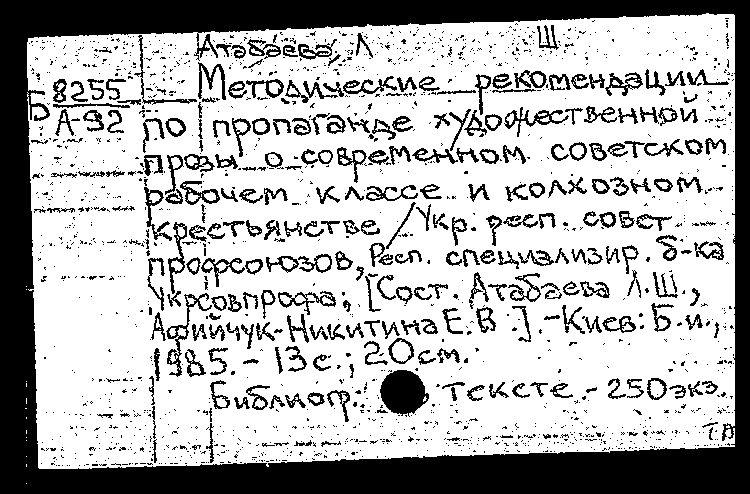 Атабаева, Л Ш
Б 8255 Методические рекомендации
А-92 по пропаганде художественной
прозы о современном советском
рабочем классе и колхозном
крестьянстве / Укр. респ. совет
профсоюзов, Респ. специализир. б-ка
Укрсовпрофа; [Сост. Атабаева Л.Ш.,
Афийчук-Никитина Е.В.]. - Киев: Б.и.,
1985. - 13 с.; 20 см.
Библиогр.: тексте. - 250 экз.